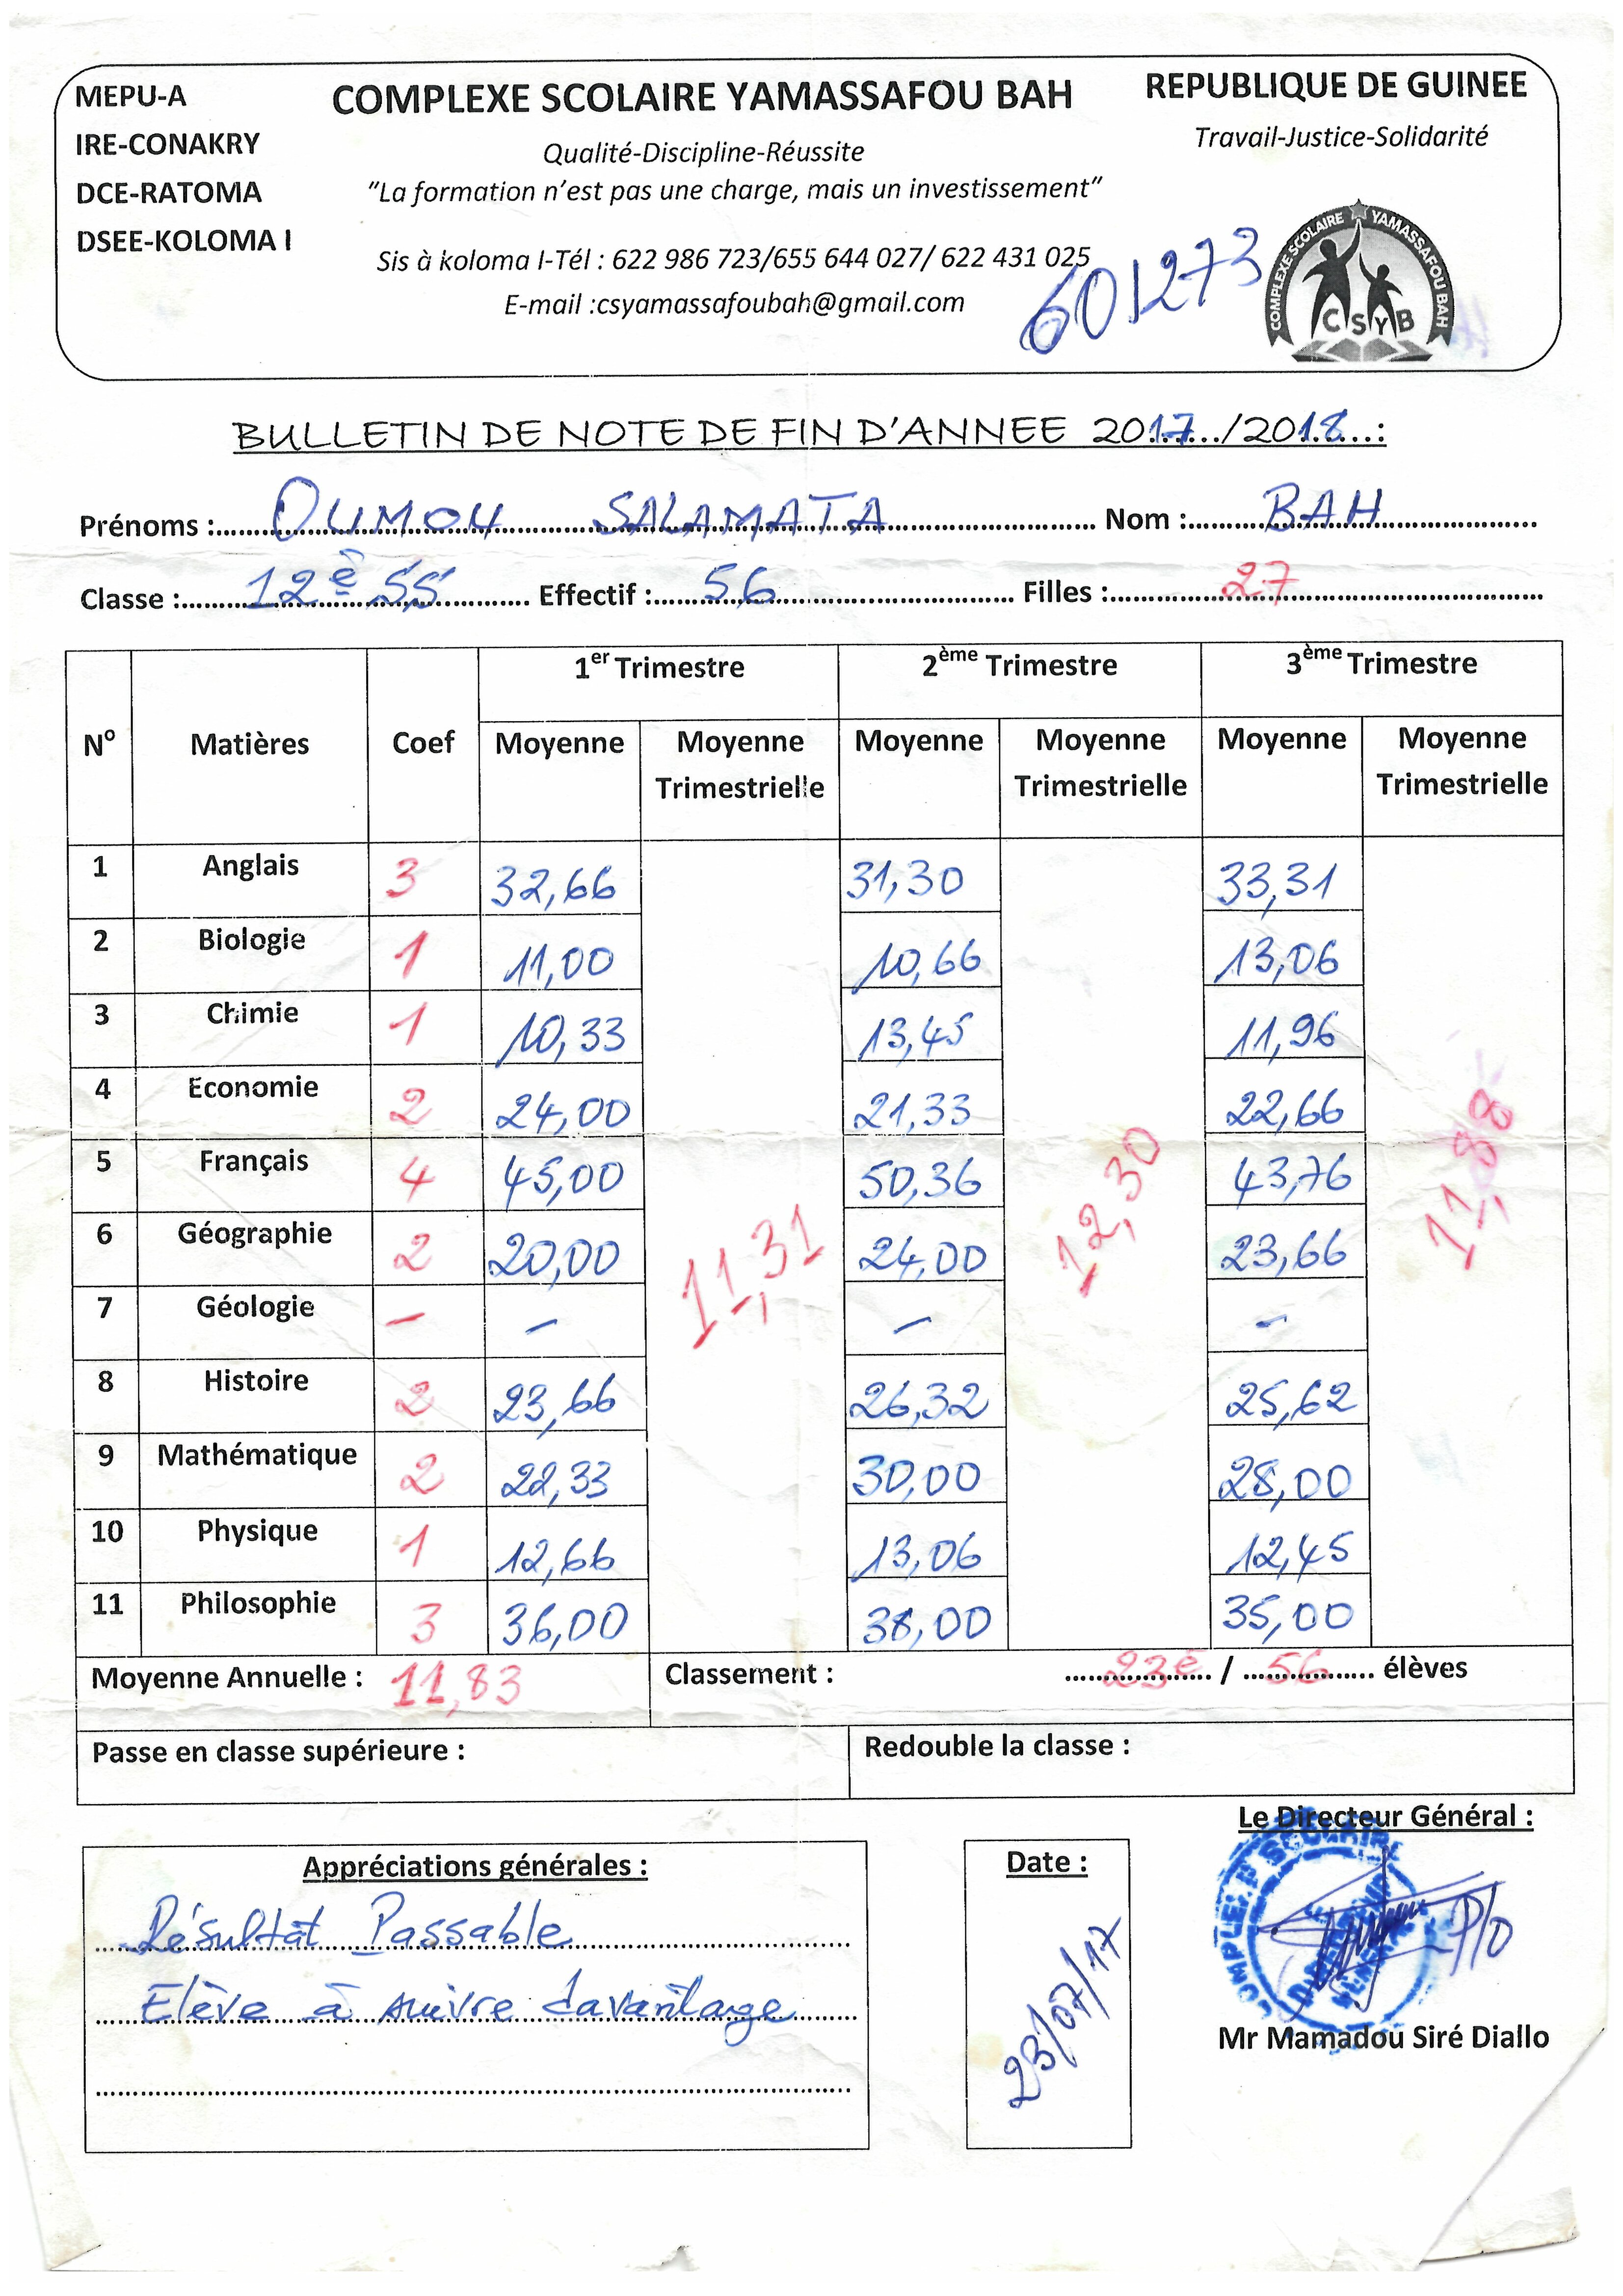 MEPU-A
COMPLEXE SCOLAIRE YAMASSAFOU BAH
REPUBLIQUE DE GUINEE
IRE-CONAKRY
Qualité-Discipline-Réussite
Travail-Justice-Solidarité
DCE-RATOMA
"La formation n'est pas une charge, mais un investissement"
DSEE-KOLOMA I
Sis à koloma I-Tél : 622 986 723/655 644 027/ 622 431 025
E-mail :csyamassafoubah@gmail.com
601273
COMPLEXE SCOLAIRE YAMASSAFOU BAH
CSYB
BULLETIN DE NOTE DE FIN D'ANNEE 2017.../2018...:
Prénoms : OUMOU SALAMATA Nom : BAH
Classe : 12è SS Effectif : 56 Filles : 27
N° Matières Coef 1er Trimestre 2ème Trimestre 3ème Trimestre
Moyenne Moyenne Trimestrielle Moyenne Moyenne Trimestrielle Moyenne Moyenne Trimestrielle
1 Anglais 3 32,66 31,30 33,31
2 Biologie 1 11,00 10,66 13,06
3 Chimie 1 10,33 13,45 11,96
4 Economie 2 24,00 21,33 22,66
5 Français 4 45,00 50,36 43,76
6 Géographie 2 20,00 24,00 23,66
11,31 12,30 11,88
7 Géologie – – – –
8 Histoire 2 23,66 26,32 25,62
9 Mathématique 2 22,33 30,00 28,00
10 Physique 1 12,66 13,06 12,45
11 Philosophie 3 36,00 38,00 35,00
Moyenne Annuelle : 11,83 Classement : 23è / 56 élèves
Passe en classe supérieure : Redouble la classe :
Le Directeur Général :
Appréciations générales :
Date :
Résultat Passable
Elève à suivre davantage
23/07/17
P/O
Mr Mamadou Siré Diallo